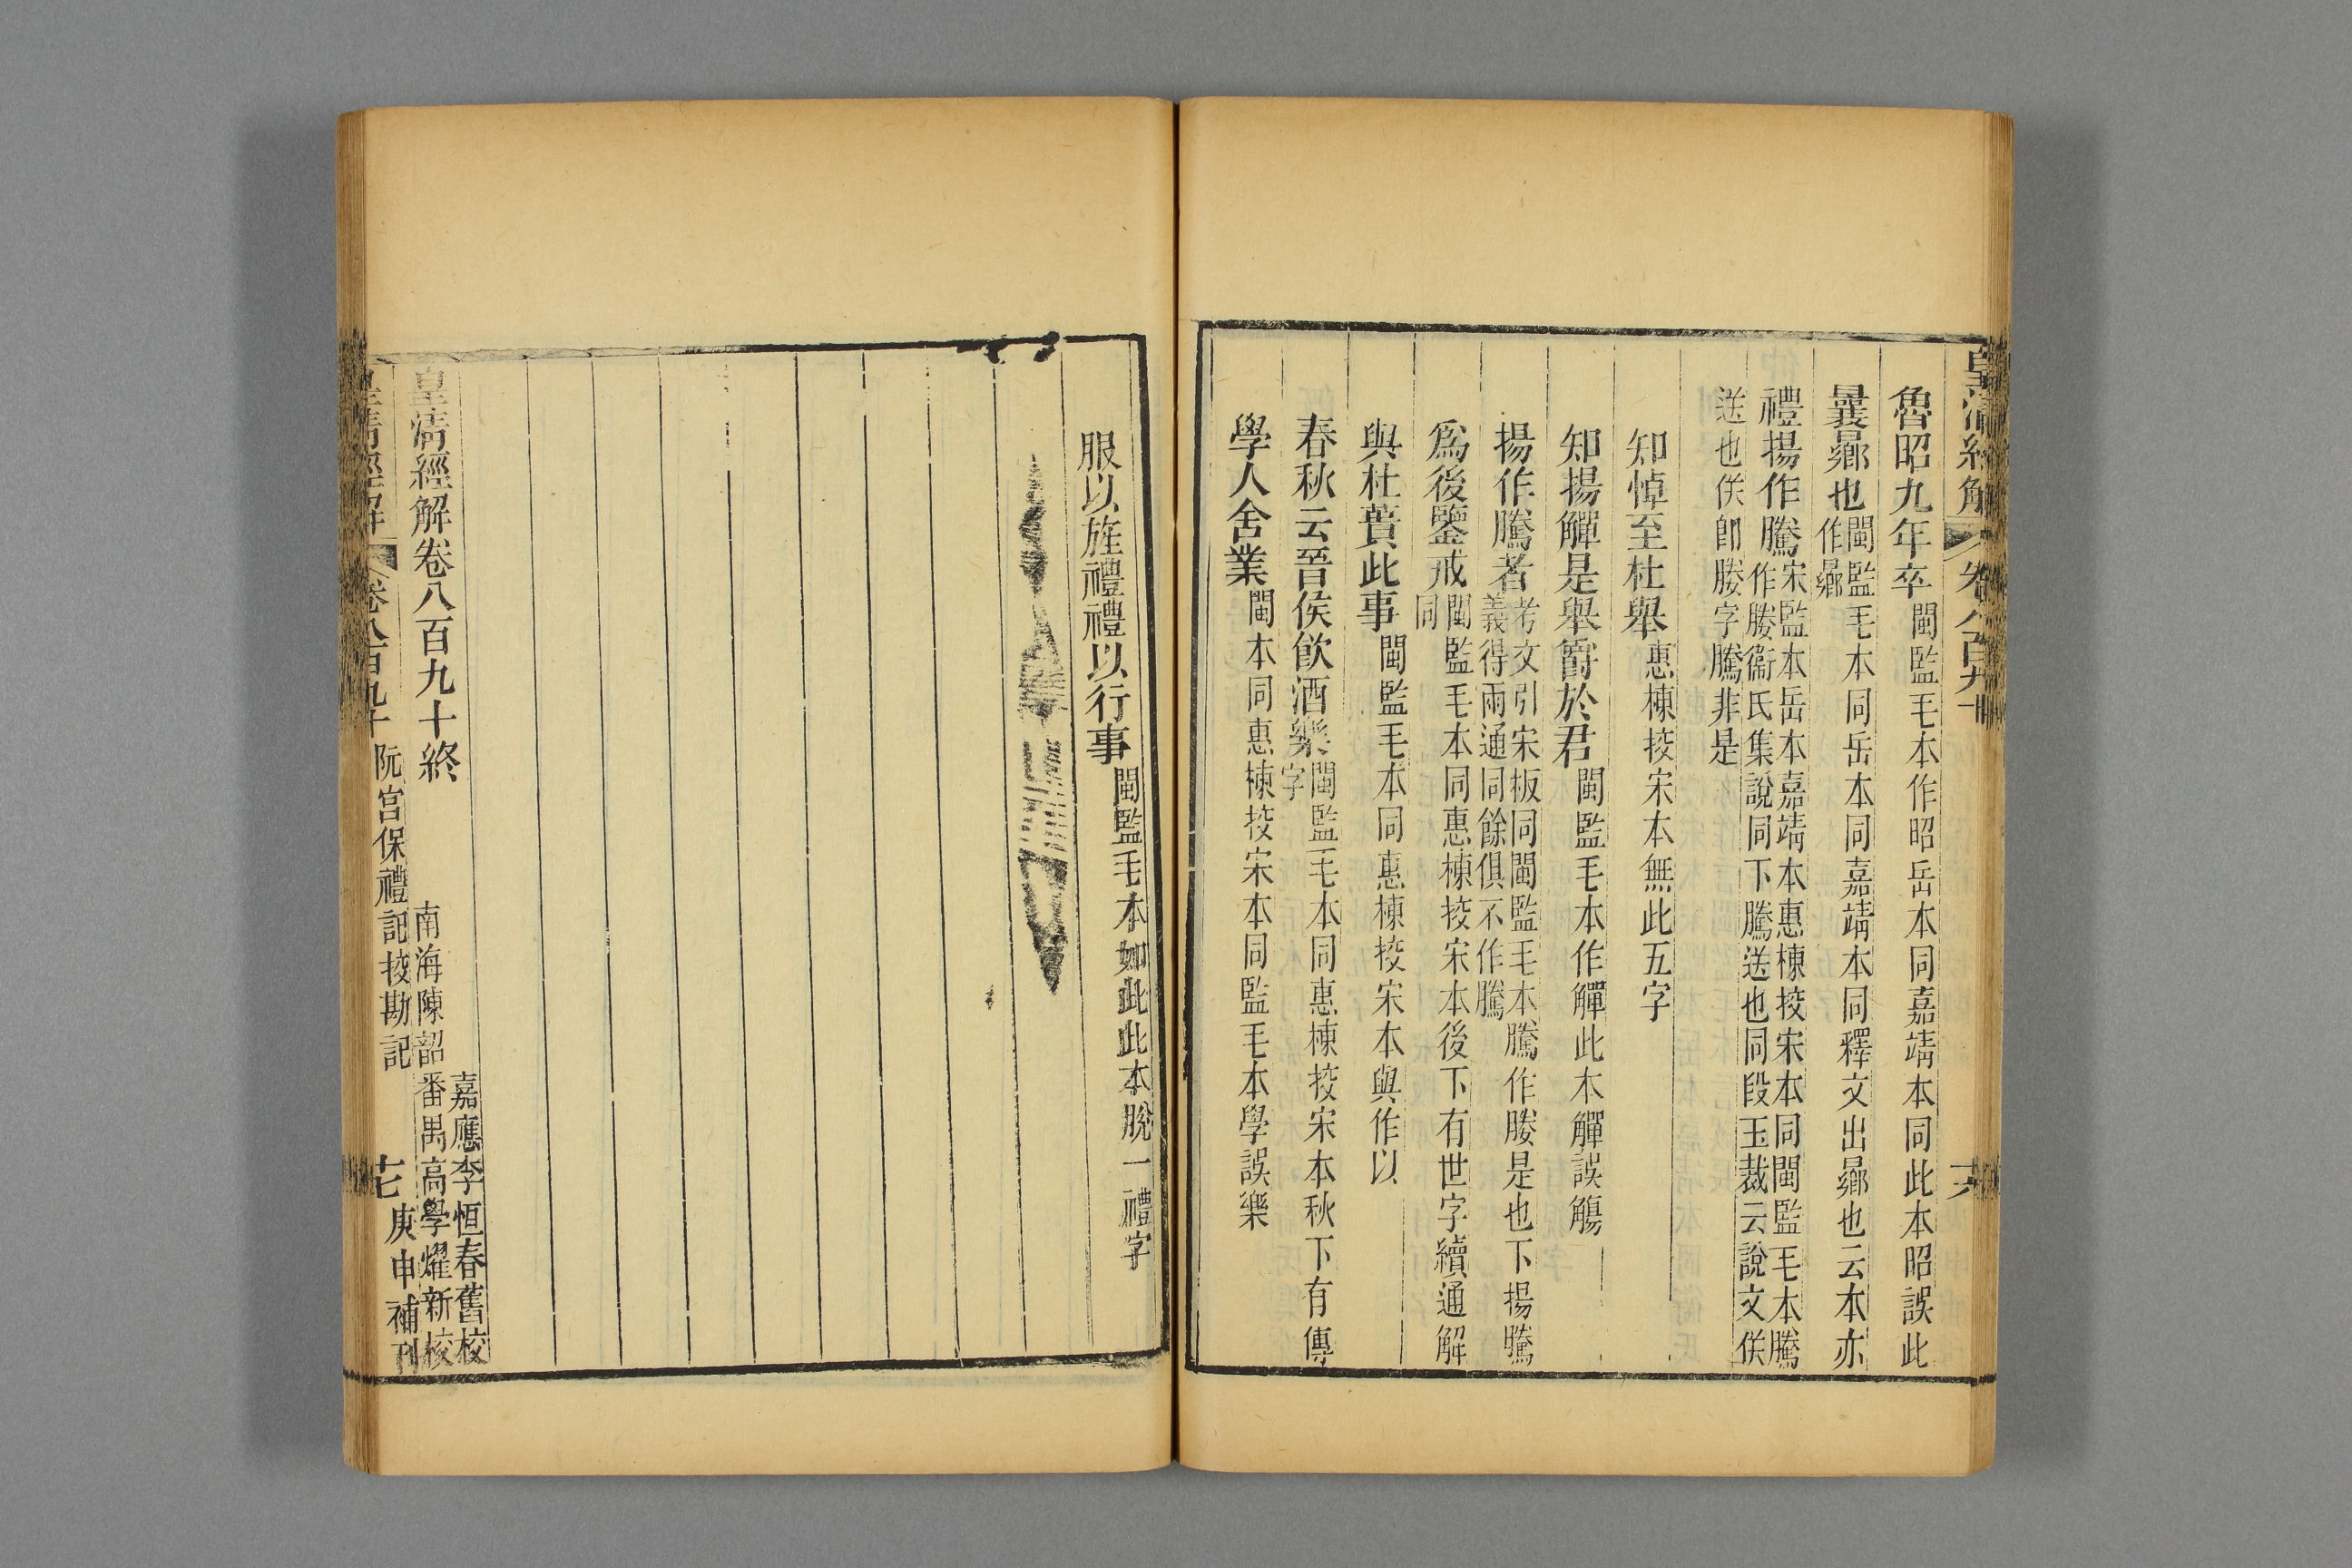 皇清經解 卷八百九十 六
魯昭九年卒 閩監毛本作昭岳本同嘉靖本同此本昭誤此
曩曏也 閩監毛本同岳本同嘉靖本同釋文出曏也云本亦
作曏
禮揚作騰 宋監本岳本嘉靖本惠棟挍宋本同閩監毛本騰
作媵衞氏集說同下騰送也同段玉裁云說文佚
送也佚卽媵字騰非是
知悼至杜舉 惠棟挍宋本無此五字
知揚觶是舉爵於君 閩監毛本作觶此本觶誤觴
揚作騰者 考文引宋板同閩監毛本騰作媵是也下揚騰
義得兩通同餘俱不作騰
爲後鑒戒 閩監毛本同惠棟挍宋本後下有世字續通解
同
與杜蕢此事 閩監毛本同惠棟挍宋本與作以
春秋云晉侯飮酒樂 閩監毛本同惠棟挍宋本秋下有傳
字
學人舍業 閩本同惠棟挍宋本同監毛本學誤樂
服以旌禮禮以行事 閩監毛本如此此本脫一禮字
皇清經解卷八百九十終
嘉應李恒春舊校
南海陳韶
番禺高學燿新校
皇清經解 卷八百九十 阮宮保禮記挍勘記 七 庚申補刊